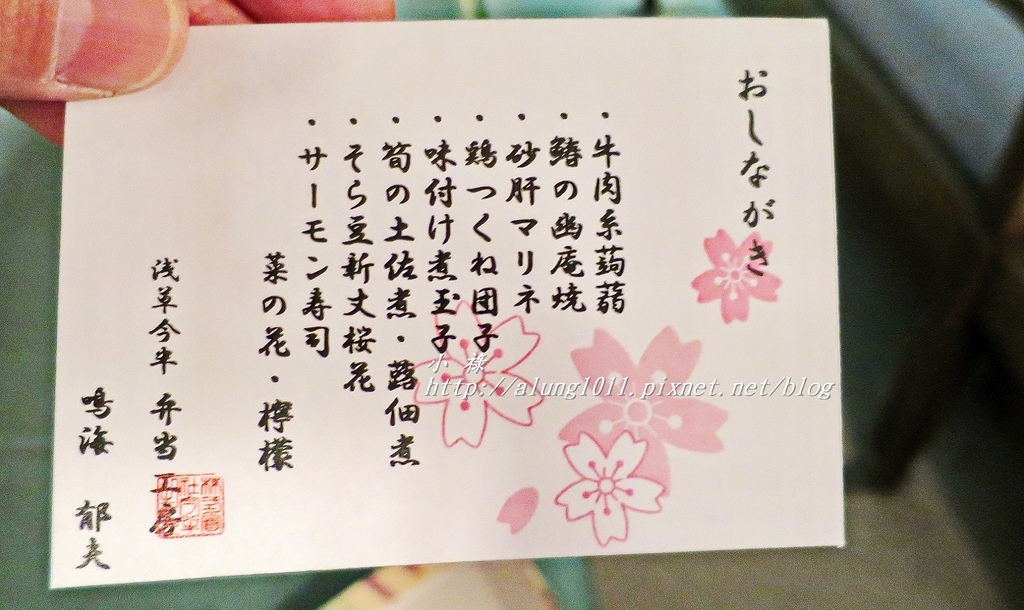 おしながき
・牛肉糸蒟蒻
・鰆の幽庵焼
・砂肝マリネ
・鶏つくね団子
・味付け煮玉子
・筍の土佐煮・蕗佃煮
・そら豆新丈桜花
・サーモン寿司
菜の花・檸檬
浅草今半 弁当工房
鳴海 郁夫
小 祿
http://alung1011.pixnet.net/blog